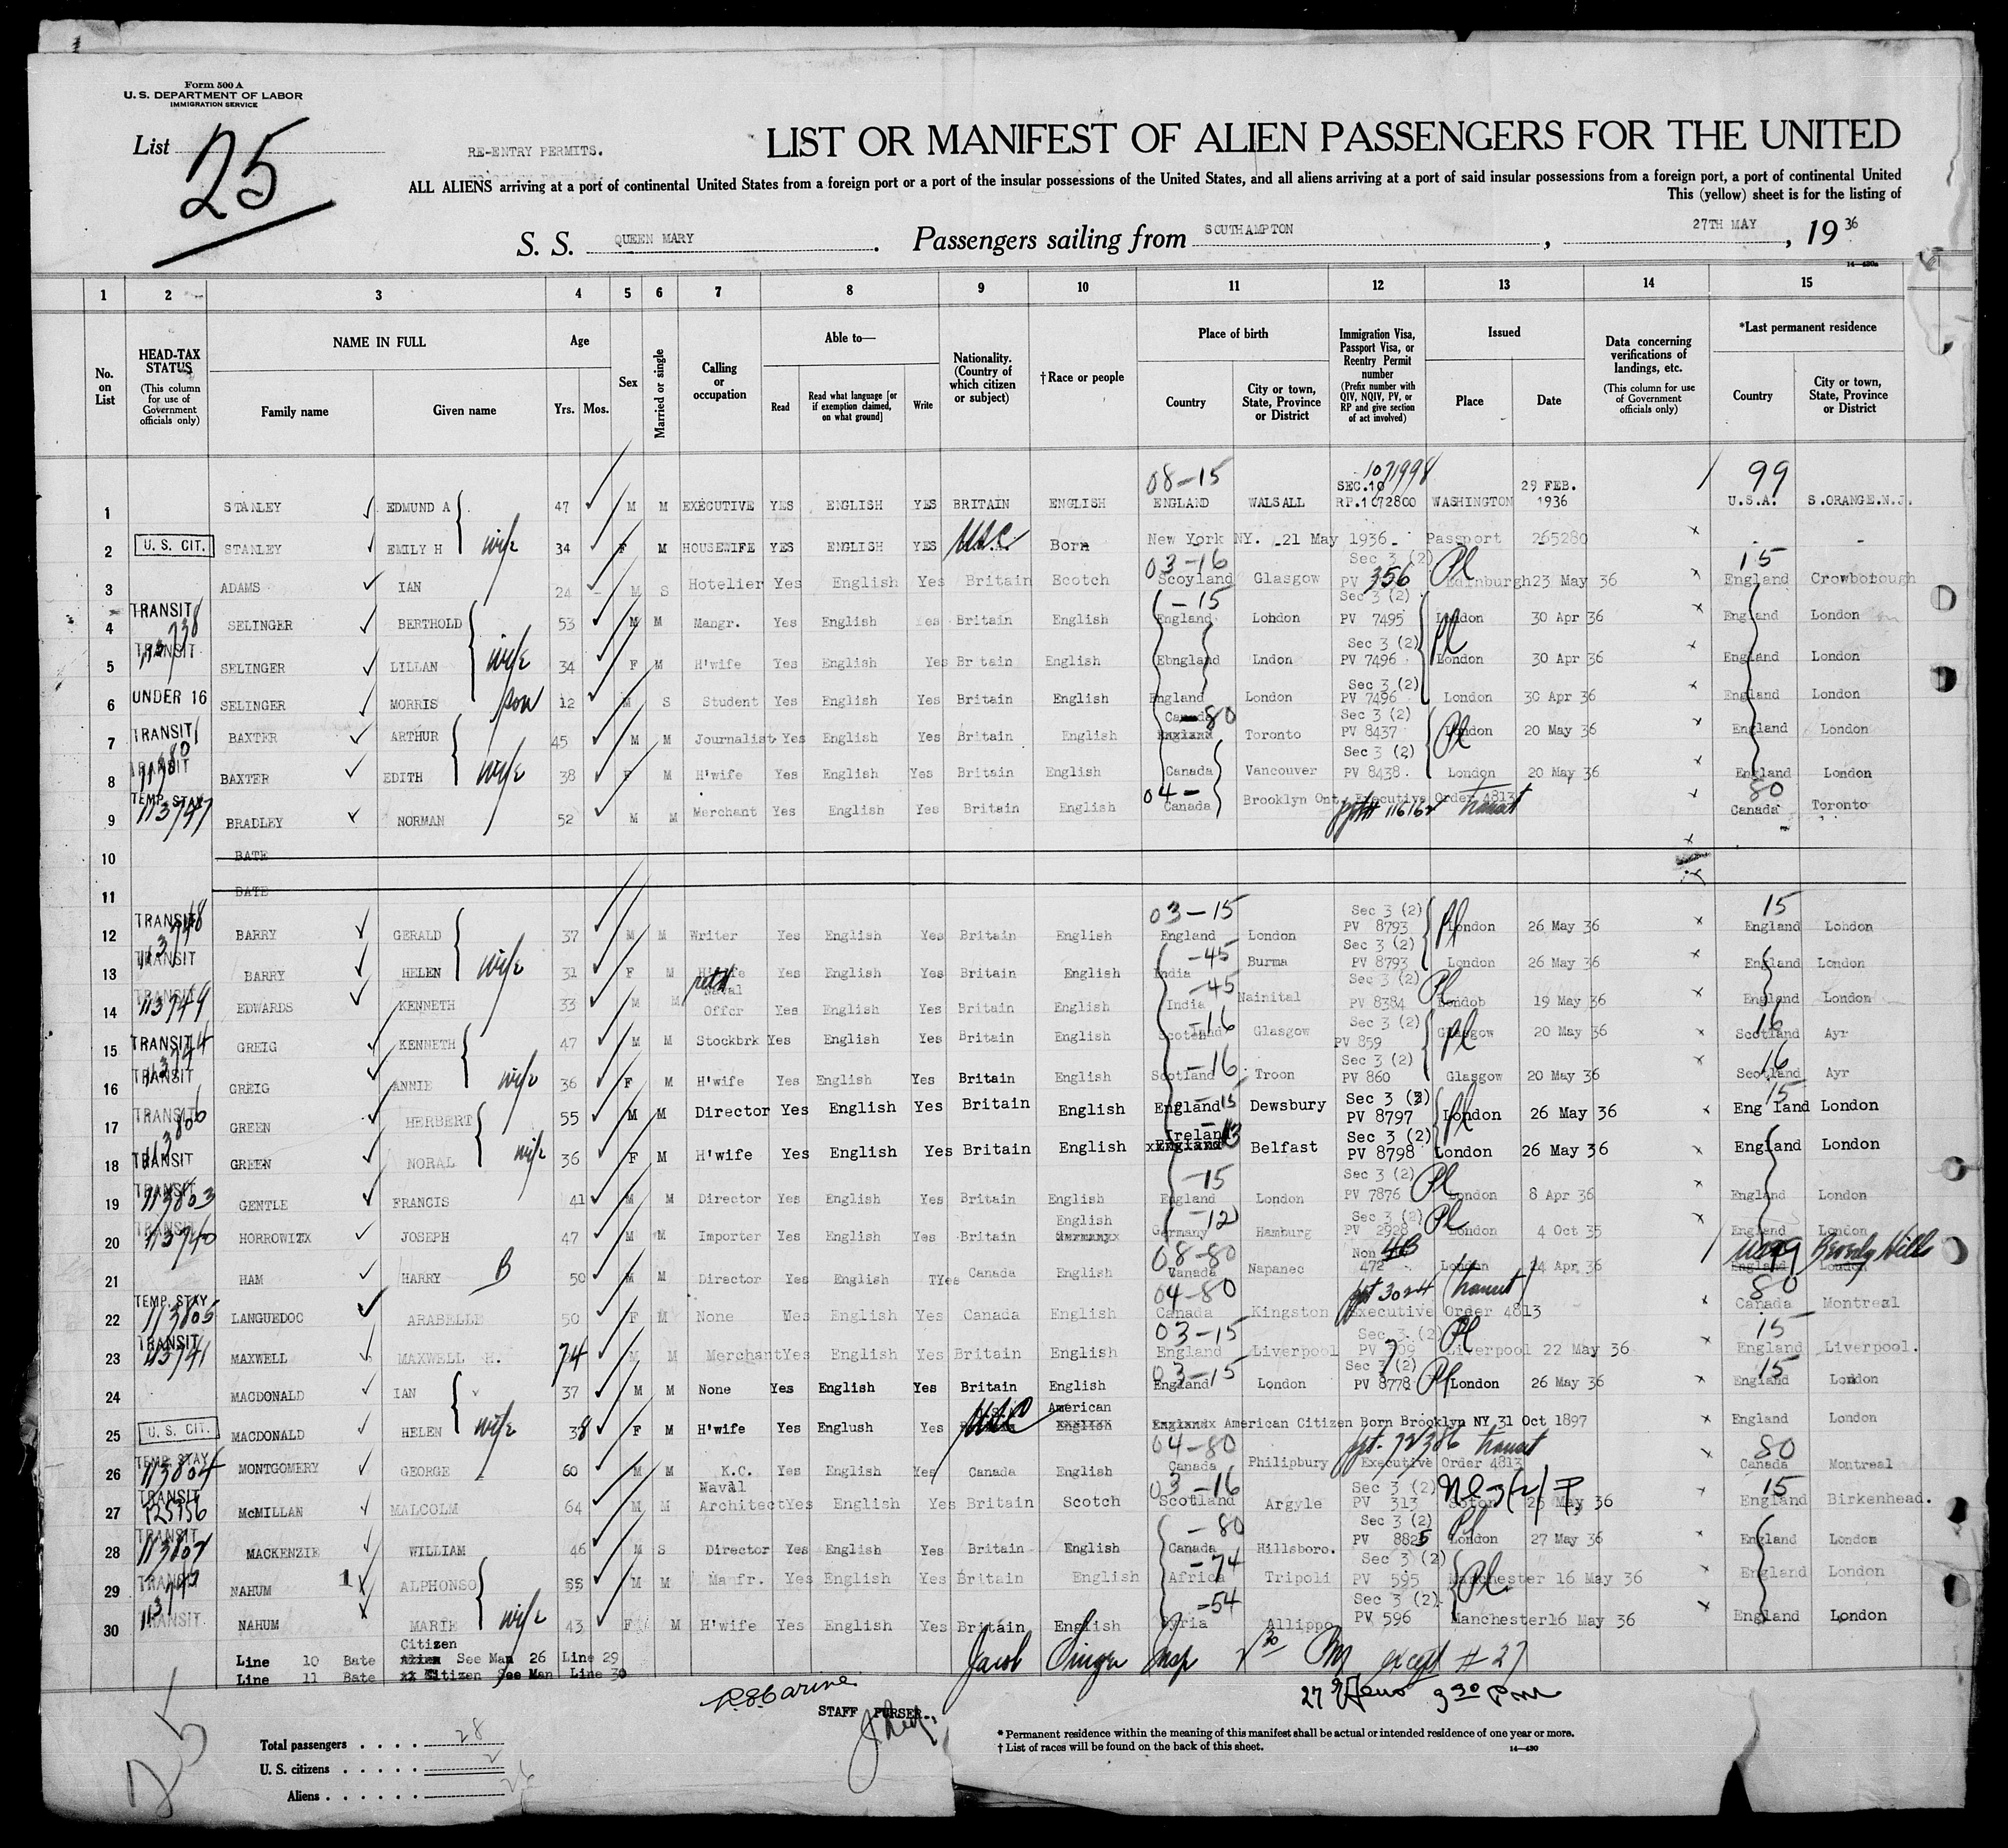 Form 500 A
U. S. DEPARTMENT OF LABOR
IMMIGRATION SERVICE
List 25
RE-ENTRY PERMITS.
LIST OR MANIFEST OF ALIEN PASSENGERS FOR THE UNITED
ALL ALIENS arriving at a port of continental United States from a foreign port or a port of the insular possessions of the United States, and all aliens arriving at a port of said insular possessions from a foreign port, a port of continental United
This (yellow) sheet is for the listing of
S. S. QUEEN MARY. Passengers sailing from SOUTHAMPTON, 27TH MAY, 19 36
14—430a
1 2 3 4 5 6 7 8 9 10 11 12 13 14 15
No. on List
HEAD-TAX STATUS (This column for use of Government officials only)
NAME IN FULL Family name Given name
Age Yrs. Mos.
Sex
Married or single
Calling or occupation
Able to— Read Read what language [or if exemption claimed, on what ground] Write
Nationality. (Country of which citizen or subject)
†Race or people
Place of birth Country City or town, State, Province or District
Immigration Visa, Passport Visa, or Reentry Permit number (Prefix number with QIV, NQIV, PV, or RP and give section of act involved)
Issued Place Date
Data concerning verifications of landings, etc. (This column for use of Government officials only)
*Last permanent residence Country City or town, State, Province or District
08-15 1071998 99
1 STANLEY EDMUND A 47 M M EXECUTIVE YES ENGLISH YES BRITAIN ENGLISH ENGLAND WALSALL SEC.10 RP.1072800 WASHINGTON 29 FEB. 1936 U.S.A. S.ORANGE.N.J.
2 U. S. CIT. STANLEY EMILY H wife 34 F M HOUSEWIFE YES ENGLISH YES U.S.C. Born New York NY. 21 May 1936 Passport 265280 - -
3 ADAMS IAN 24 M S Hotelier Yes English Yes Britain Scotch 03-16 Scoyland Glasgow Sec 3 (2) PV 356 Pl Edinburgh 23 May 36 15 England Crowborough
4 TRANSIT SELINGER BERTHOLD 53 M M Mangr. Yes English Yes Britain English -15 England London Sec 3 (2) PV 7495 London 30 Apr 36 England London
5 TRANSIT SELINGER LILLAN wife 34 F M H'wife Yes English Yes Br tain English Ebngland Lndon Sec 3 (2) PV 7496 Pl London 30 Apr 36 England London
6 UNDER 16 SELINGER MORRIS son 12 M S Student Yes English Yes Britain English England London Sec 3 (2) PV 7496 London 30 Apr 36 England London
7 TRANSIT BAXTER ARTHUR 45 M M Journalist Yes English Yes Britain English Canada 80 England Toronto Sec 3 (2) PV 8437 Pl London 20 May 36 England London
8 TRANSIT BAXTER EDITH wife 38 F M H'wife Yes English Yes Britain English Canada Vancouver Sec 3 (2) PV 8438 London 20 May 36 England London
9 TEMP. STAY 113747 BRADLEY NORMAN 52 M M Merchant Yes English Yes Britain English 04- Canada Brooklyn Ont. Executive Order 4813 ppt# 116162 transit 80 Canada Toronto
10 BATE
11 BATE
12 TRANSIT 113748 BARRY GERALD 37 M M Writer Yes English Yes Britain English 03-15 England London Sec 3 (2) PV 8793 Pl London 26 May 36 15 England London
13 TRANSIT BARRY HELEN wife 31 F M H'wife Yes English Yes Britain English -45 India Burma Sec 3 (2) PV 8793 London 26 May 36 England London
14 TRANSIT 113749 EDWARDS KENNETH 33 M M retd Naval Offcr Yes English Yes Britain English -45 India Nainital Sec 3 (2) PV 8384 Pl Londob 19 May 36 England London
15 TRANSIT GREIG KENNETH 47 M M Stockbrk Yes English Yes Britain English -16 Scotland Glasgow Sec 3 (2) PV 859 Pl Glasgow 20 May 36 16 Scotland Ayr
16 TRANSIT GREIG ANNIE wife 36 F M H'wife Yes English Yes Britain English -16 Scotland Troon Sec 3 (2) PV 860 Glasgow 20 May 36 16 Scotland Ayr
17 TRANSIT GREEN HERBERT 55 M M Director Yes English Yes Britain English England -15 Dewsbury Sec 3 (2) PV 8797 Pl London 26 May 36 15 Eng land London
18 TRANSIT GREEN NORAL wife 36 F M H'wife Yes English Yes Britain English Ireland England Belfast Sec 3 (2) PV 8798 London 26 May 36 England London
19 TRANSIT 113803 GENTLE FRANCIS 41 M M Director Yes English Yes Britain English -15 England London Sec 3 (2) PV 7876 Pl London 8 Apr 36 England London
20 TRANSIT 113740 HORROWITZ JOSEPH 47 M M Importer Yes English Yes Britain English Germany -12 Germany Hamburg Sec 3 (2) PV 2928 Pl London 4 Oct 35 England London
21 HAM HARRY B 50 M M Director Yes English TYes Canada English 08-80 Canada Napanec Non 4B 472 London 24 Apr 36 England London Beverly Hills
22 TEMP. STAY 113805 LANGUEDOC ARABELLE 50 F M None Mes English Yes Canada English 04-80 Canada Kingston ppt 3024 transit Executive Order 4813 80 Canada Montreal
23 TRANSIT 113741 MAXWELL MAXWELL H. 74 M M Merchant Yes English Yes Britain English 03-15 England Liverpool Sec 3 (2) PV 709 Pl Liverpool 22 May 36 15 England Liverpool.
24 MACDONALD IAN 37 M M None Yes English Yes Britain English 03-15 England London Sec 3 (2) PV 8778 Pl London 26 May 36 15 England London
25 U. S. CIT. MACDONALD HELEN wife 38 F M H'wife Yes Englush Yes USC American English England American Citizen Born Brooklyn NY 31 Oct 1897 England London
26 TEMP. STAY 113804 MONTGOMERY GEORGE 60 M M K.C. Yes English Yes Canada English 04-80 Canada Philipbury ppt. 72386 transit Executive Order 4813 80 Canada Montreal
27 TRANSIT McMILLAN MALCOLM 64 M M Naval Architect Yes English Yes Britain Scotch 03-16 Scotland Argyle Sec 3 (2) PV 313 Soton 25 May 36 15 England Birkenhead.
28 TRANSIT 113802 MACKENZIE WILLIAM 46 M S Director Yes English Yes Britain English -80 Canada Hillsboro. Sec 3 (2) PV 8825 Pl London 27 May 36 England London
29 TRANSIT NAHUM ALPHONSO 55 M M Manfr. Yes English Yes Britain English -74 Africa Tripoli Sec 3 (2) PV 595 Pl Manchester 16 May 36 England London
30 TRANSIT NAHUM MARIE wife 43 F M H'wife Yes English Yes Britain English -54 Syria Allippo Sec 3 (2) PV 596 Manchester 16 May 36 England London
Line 10 Bate Alien Citizen See Man 26 Line 29
Line 11 Bate Citizen See Man Line 30
Jacob Singer Insp except # 27
27 3 30 Pm
STAFF PURSER.
* Permanent residence within the meaning of this manifest shall be actual or intended residence of one year or more.
† List of races will be found on the back of this sheet.
14—430
Total passengers . . . . . 28
U. S. citizens . . . . . 2
Aliens . . . . . . 26
25